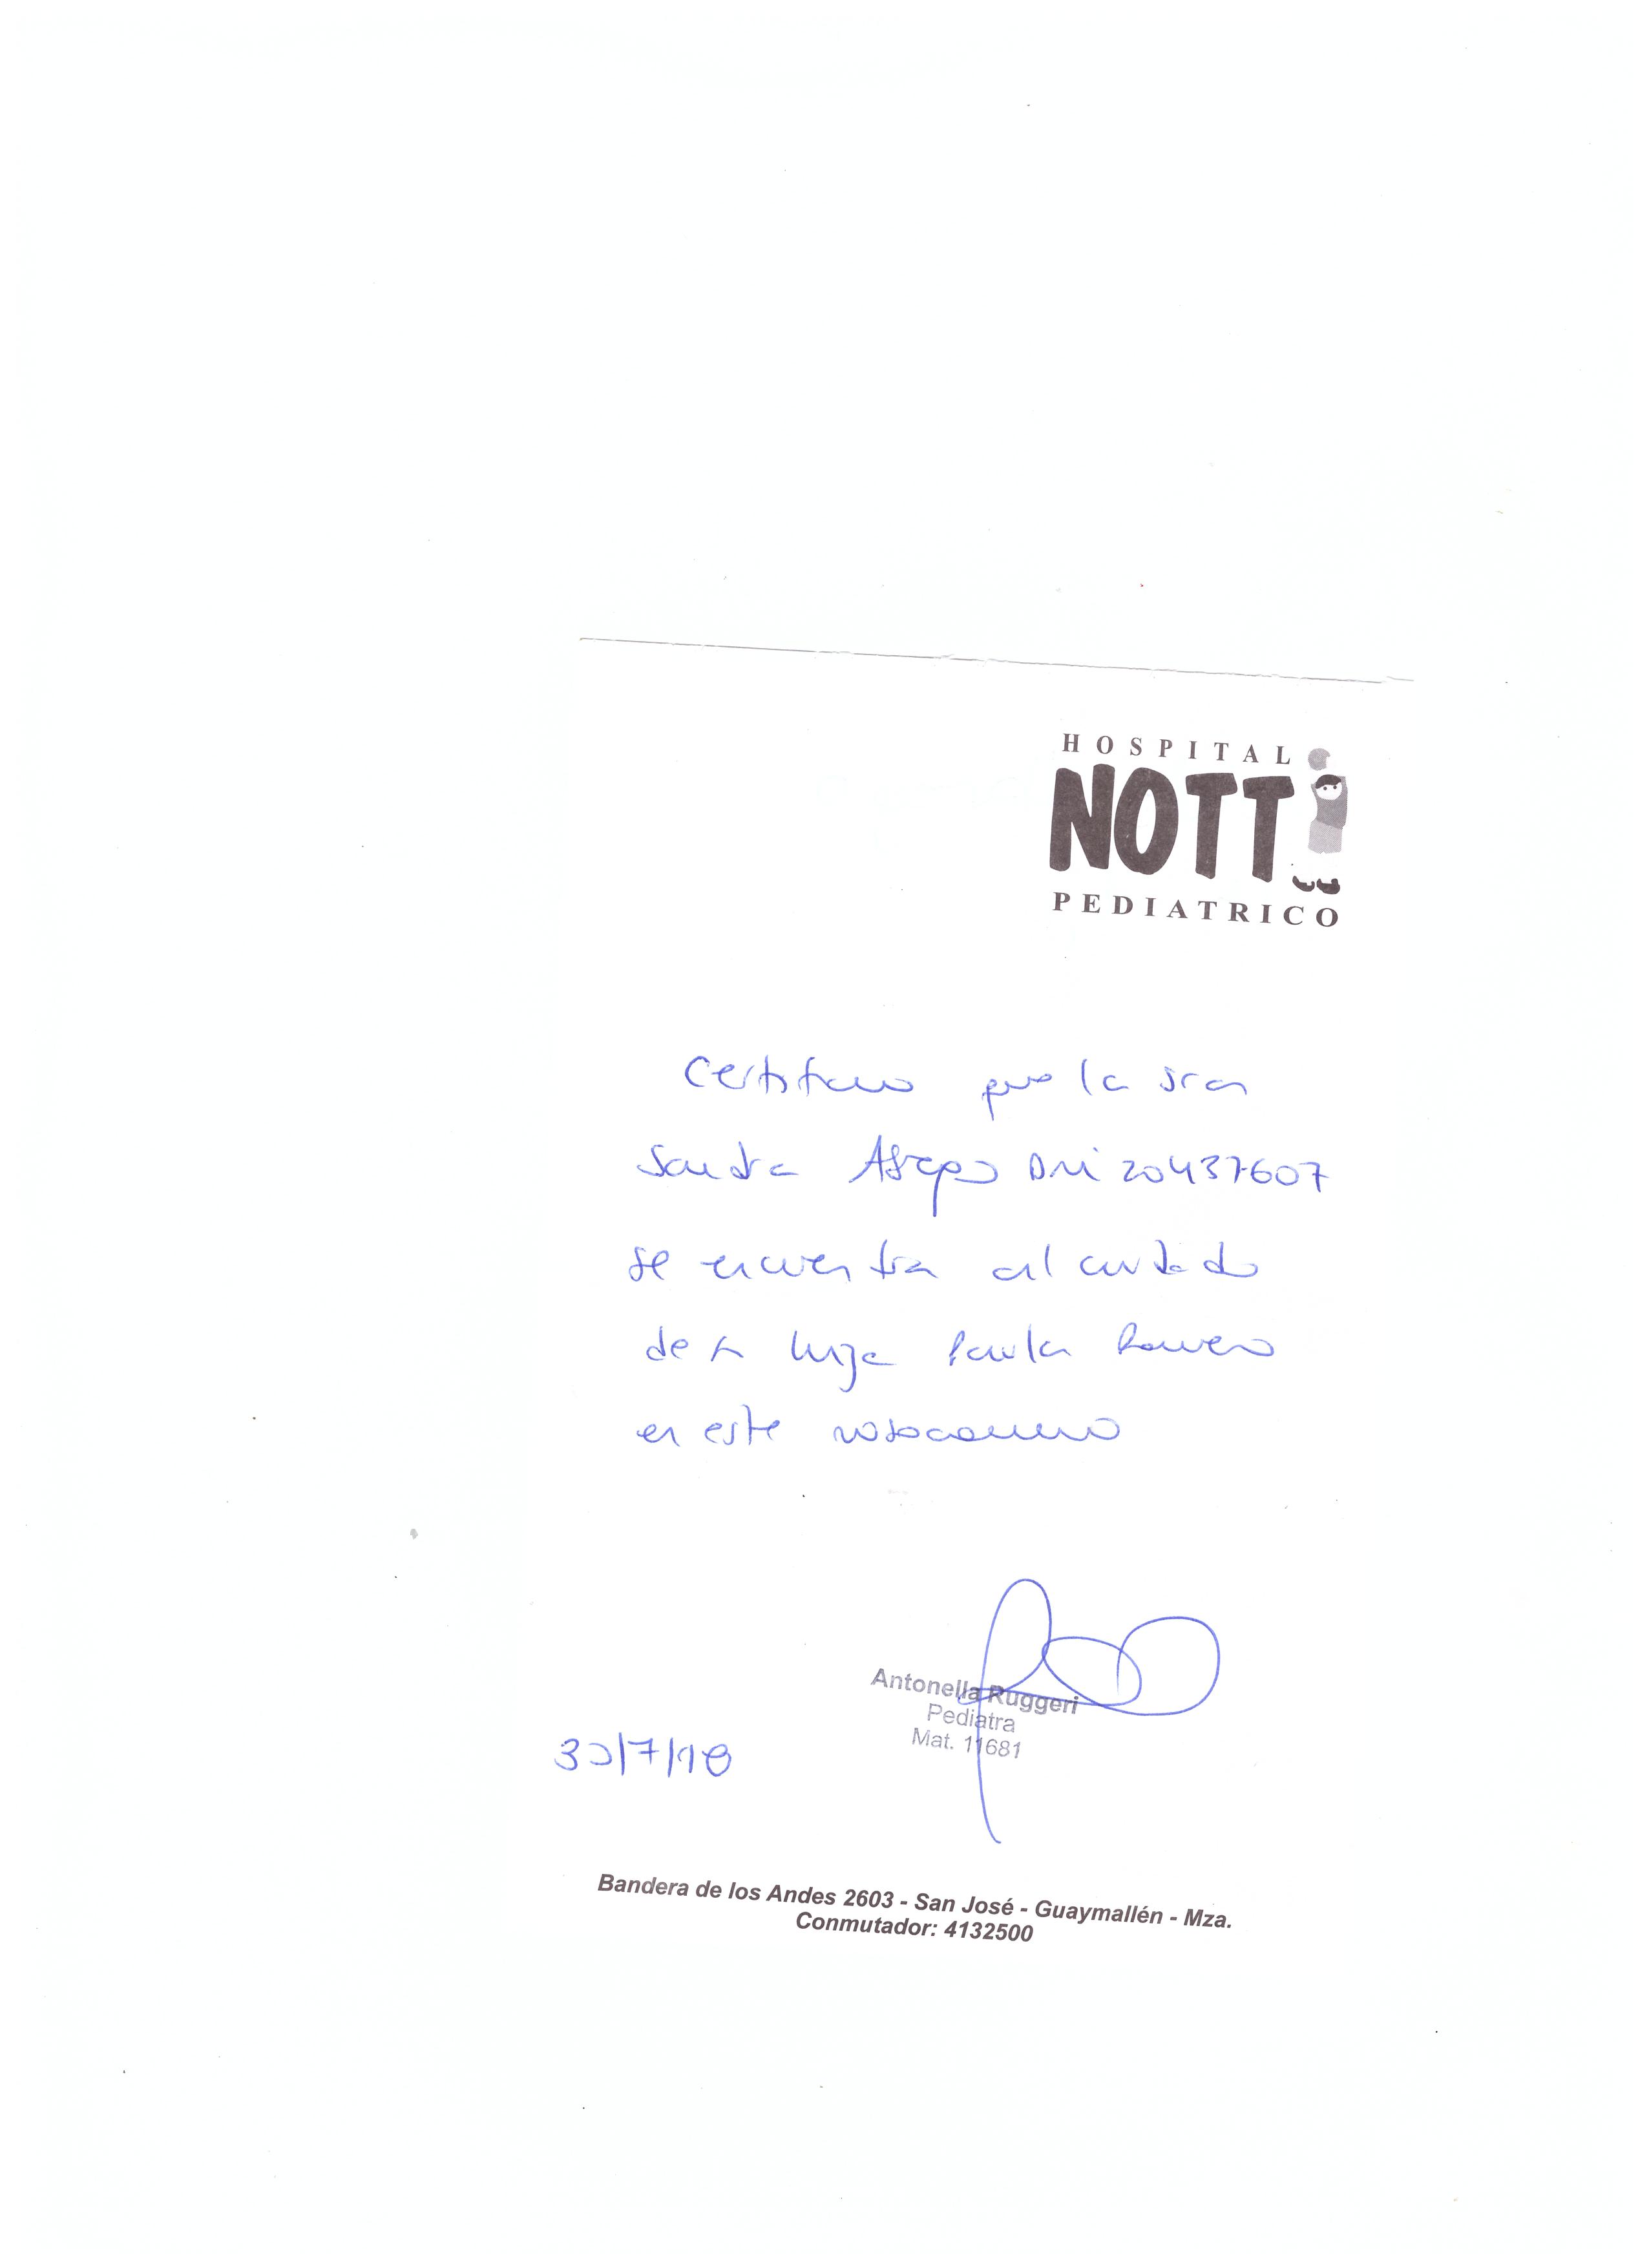 HOSPITAL
NOTTI
PEDIATRICO
Certifico que la sra
Sandra DNI 20437607
se encuentra al cuidado
de su hija Paula Romero
en este nosocomio
Antonella Ruggeri
Pediatra
Mat. 11681
30/7/18
Bandera de los Andes 2603 - San José - Guaymallén - Mza.
Conmutador: 4132500